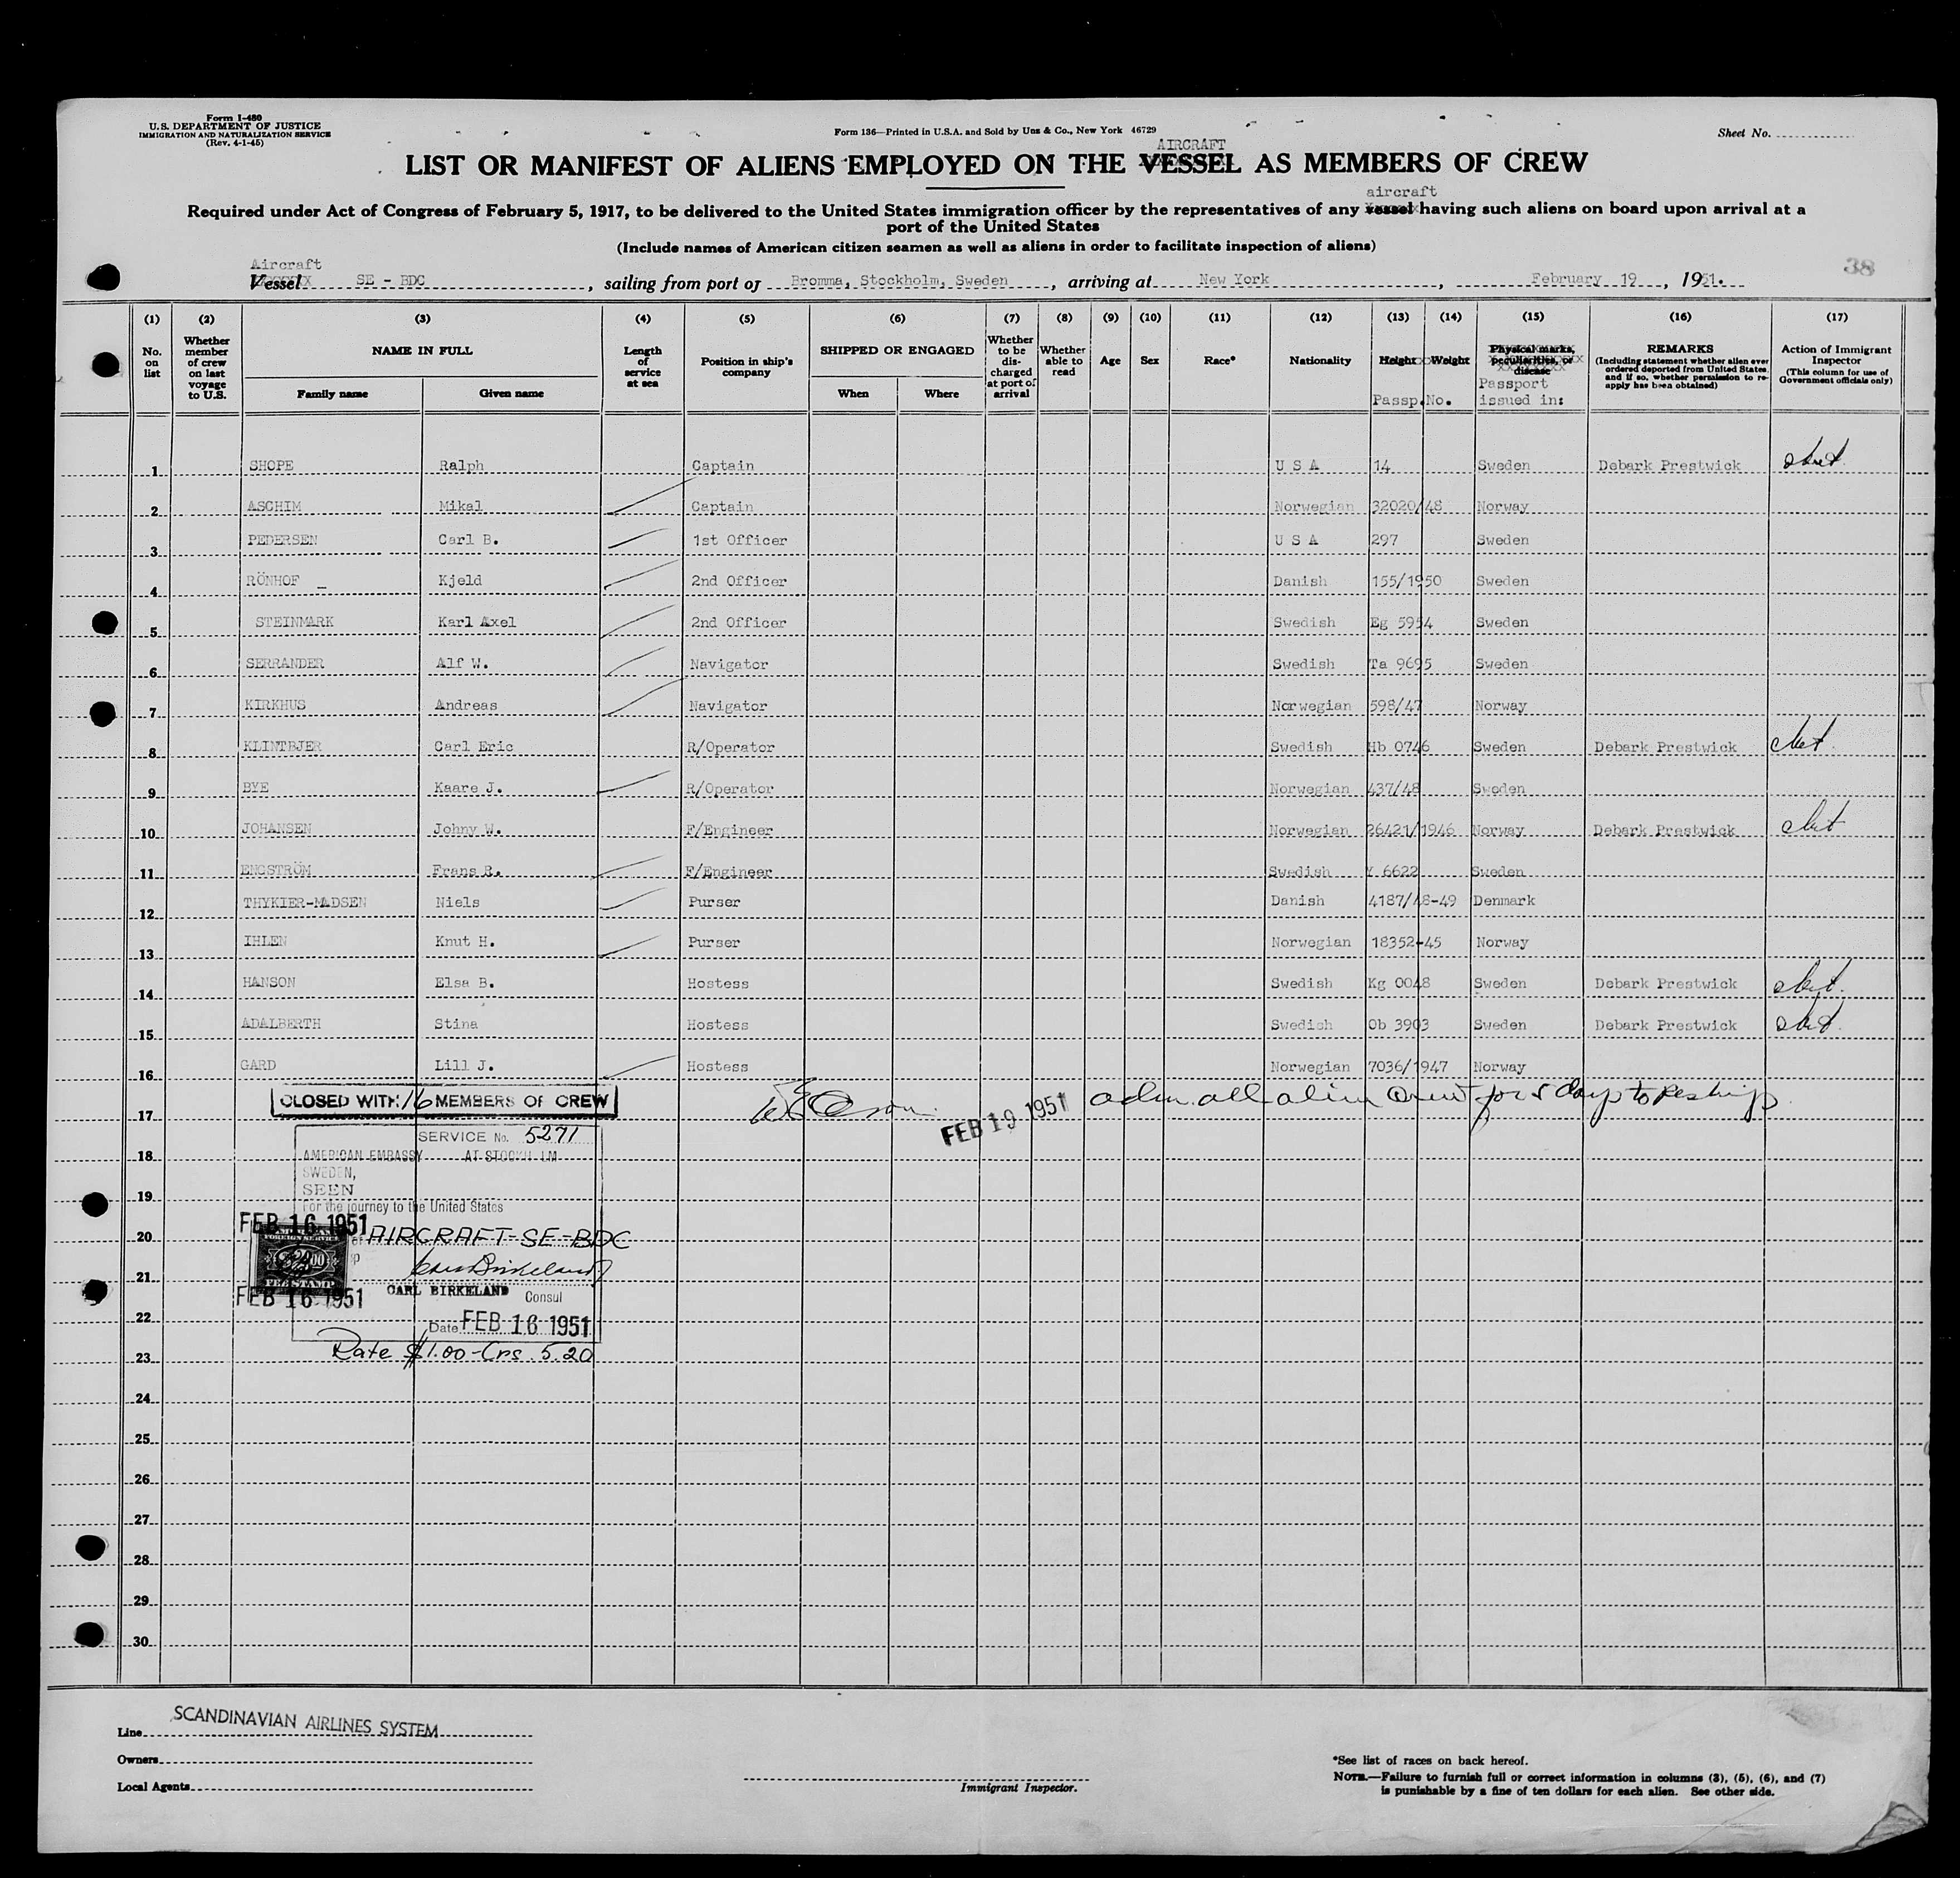 Form I-480
U.S. DEPARTMENT OF JUSTICE
IMMIGRATION AND NATURALIZATION SERVICE
(Rev. 4-1-45)
Form 136—Printed in U.S.A. and Sold by Unz & Co., New York 46729
Sheet No.
AIRCRAFT
LIST OR MANIFEST OF ALIENS EMPLOYED ON THE VESSEL AS MEMBERS OF CREW
aircraft
Required under Act of Congress of February 5, 1917, to be delivered to the United States immigration officer by the representatives of any vessel having such aliens on board upon arrival at a
port of the United States
(Include names of American citizen seamen as well as aliens in order to facilitate inspection of aliens)
Aircraft
Vessel SE - BDC, sailing from port of Bromma, Stockholm, Sweden, arriving at New York, February 19, 1951.
38
(1) (2) (3) (4) (5) (6) (7) (8) (9) (10) (11) (12) (13) (14) (15) (16) (17)
No. on list
Whether member of crew on last voyage to U.S.
NAME IN FULL
Family name Given name
Length of service at sea
Position in ship's company
SHIPPED OR ENGAGED
When Where
Whether to be discharged at port of arrival
Whether able to read
Age
Sex
Race*
Nationality
Height Weight
Passp.No.
Physical marks, peculiarities, or disease
Passport issued in:
REMARKS
(Including statement whether alien ever ordered deported from United States, and if so, whether permission to re-apply has been obtained)
Action of Immigrant Inspector
(This column for use of Government officials only)
1 SHOPE Ralph Captain U S A 14 Sweden Debark Prestwick
2 ASCHIM Mikal Captain Norwegian 32020/48 Norway
3 PEDERSEN Carl B. 1st Officer U S A 297 Sweden
4 RÖNHOF _ Kjeld 2nd Officer Danish 155/1950 Sweden
5 STEINMARK Karl Axel 2nd Officer Swedish Eg 5954 Sweden
6 SERRANDER Alf W. Navigator Swedish Ta 9695 Sweden
7 KIRKHUS Andreas Navigator Norwegian 598/47 Norway
8 KLINTBJER Carl Eric R/Operator Swedish Hb 0746 Sweden Debark Prestwick
9 BYE Kaare J. R/Operator Norwegian 437/48 Sweden
10 JOHANSEN Johny W. F/Engineer Norwegian 26421/1946 Norway Debark Prestwick
11 ENGSTRÖM Frans R. F/Engineer Swedish Y 6622 Sweden
12 THYKIER-MADSEN Niels Purser Danish 4187/48-49 Denmark
13 IHLEN Knut H. Purser Norwegian 18352-45 Norway
14 HANSON Elsa B. Hostess Swedish Kg 0048 Sweden Debark Prestwick
15 ADALBERTH Stina Hostess Swedish Ob 3903 Sweden Debark Prestwick
16 GARD Lill J. Hostess Norwegian 7036/1947 Norway
CLOSED WITH 16 MEMBERS OF CREW
FEB 19 1951 adm. all alien crew for 5 days to
17
SERVICE No. 5271
AMERICAN EMBASSY AT STOCKHOLM
18
SWEDEN,
SEEN
19
For the journey to the United States
FEB 16 1951
20
AIRCRAFT-SE-BDC
FOREIGN SERVICE
FEE STAMP
21
Carl Birkeland
FEB 16 1951
CARL BIRKELAND Consul
22
Date FEB 16 1951
Rate $1.00-Crs. 5.20
23
24
25
26
27
28
29
30
SCANDINAVIAN AIRLINES SYSTEM
Line
Owners
Local Agents
Immigrant Inspector.
*See list of races on back hereof.
NOTE.—Failure to furnish full or correct information in columns (3), (5), (6), and (7)
is punishable by a fine of ten dollars for each alien. See other side.